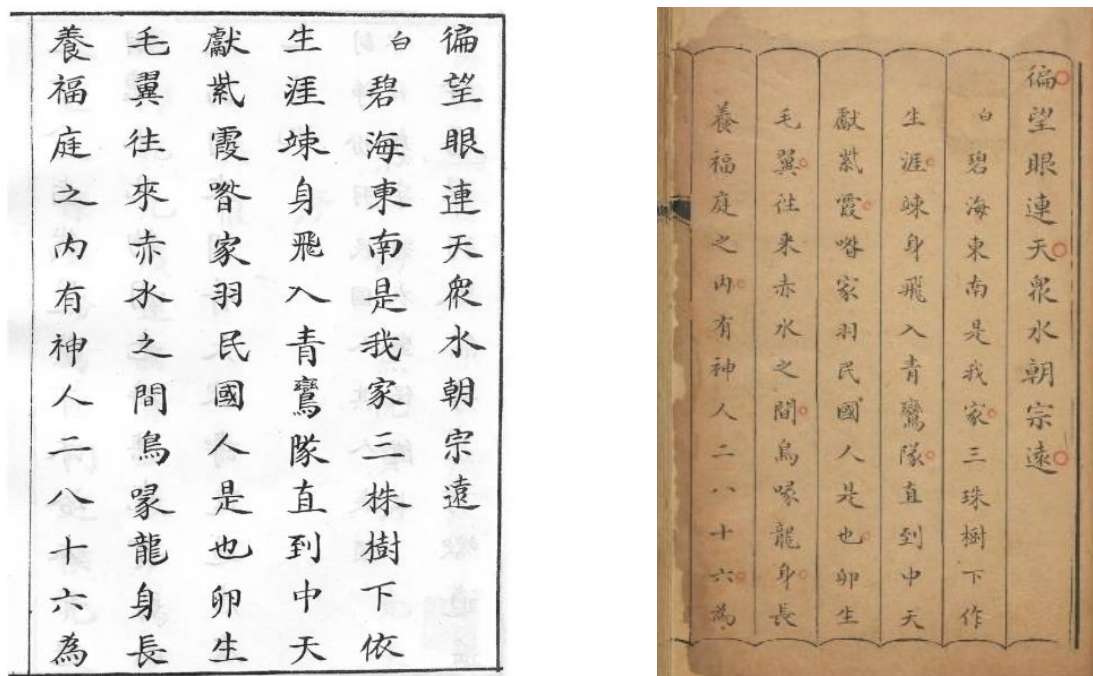 徧望眼連天衆水朝宗遠
白碧海東南是我家三株樹下依
生涯竦身飛入青鸞隊直到中天
獻紫霞喒家羽民國人是也卵生
毛翼往來赤水之間鳥喙龍身長
養福庭之內有神人二八十六為
徧望眼連天衆水朝宗遠
白碧海東南是我家三珠樹下作
生涯竦身飛入青鸞隊直到中天
獻紫霞喒家羽民國人是也卵生
毛翼往来赤水之間鳥喙龍身長
養福庭之內有神人二八十六為